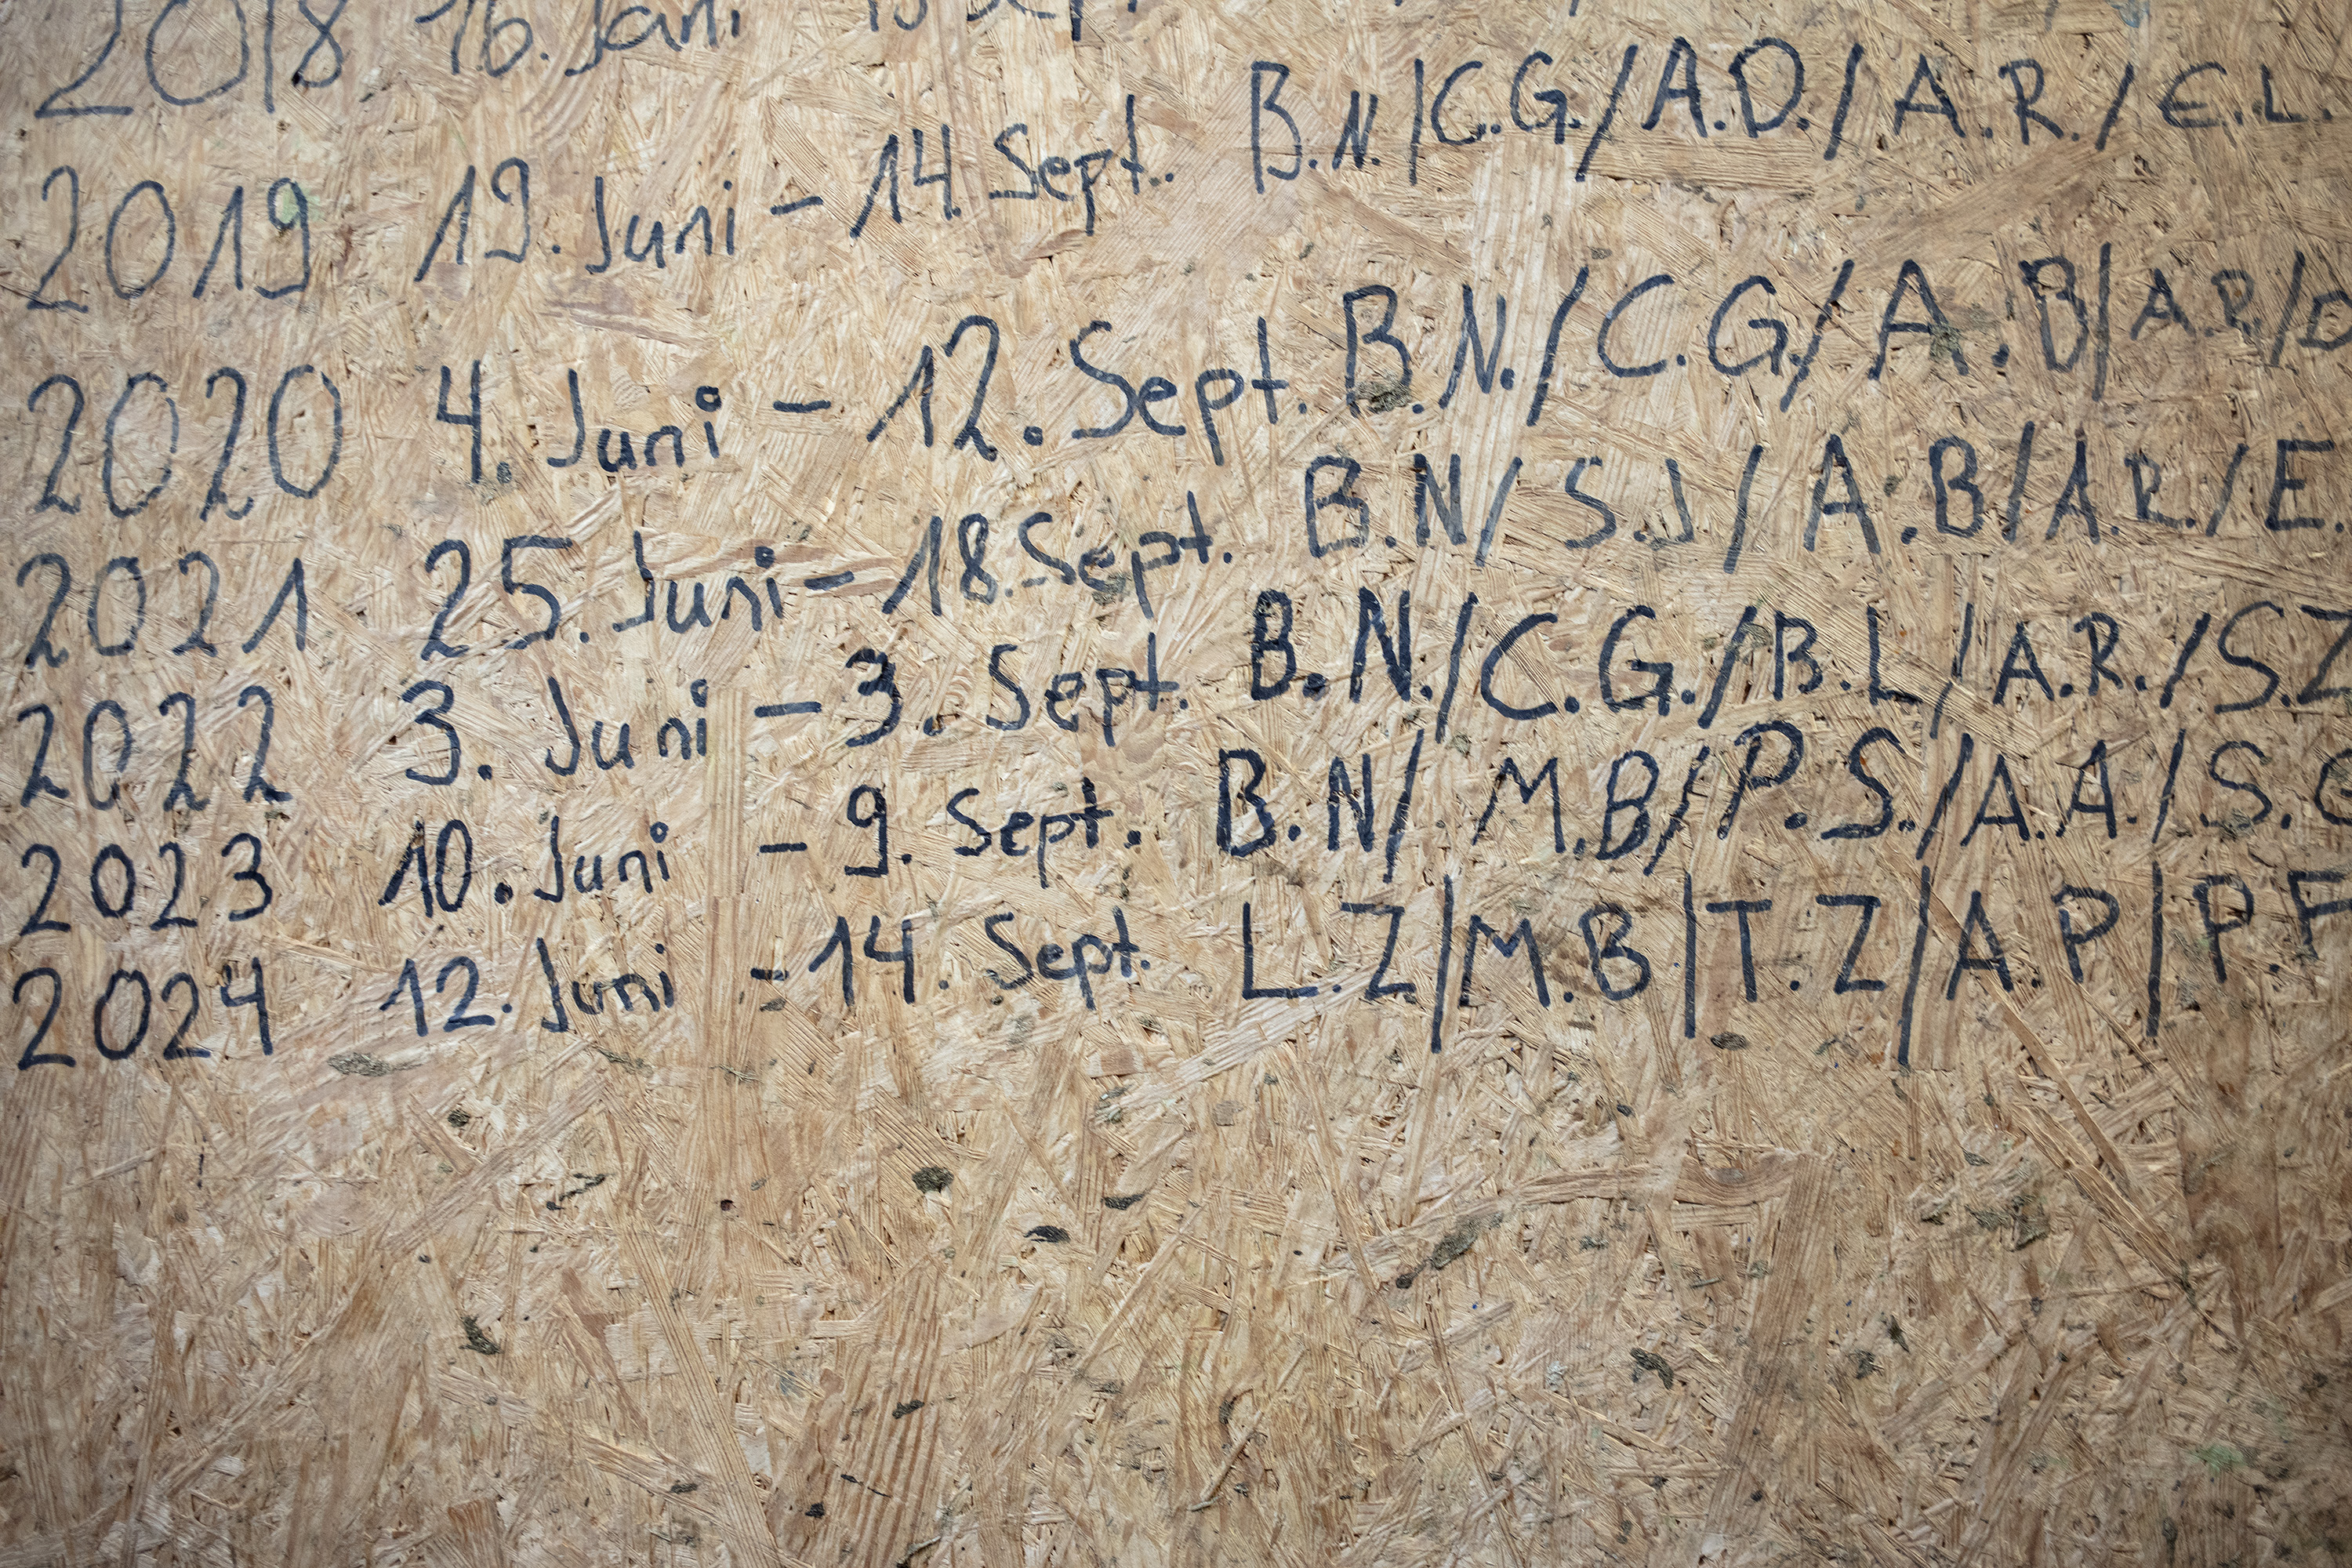 2018 16. Juni 15 Sept
2019 19. Juni - 14. Sept. B.N./C.G./A.D./A.R./E.L.
2020 4. Juni - 12. Sept. B.N./C.G/A.B/A.R./
2021 25. Juni - 18. Sept. B.N/S.J/A.B/A.R./E.
2022 3. Juni - 3. Sept. B.N./C.G./B.L/A.R./S.Z
2023 10. Juni - 9. Sept. B.N/M.B/P.S./A.A./S.
2024 12. Juni - 14. Sept. L.Z|M.B|T.Z|A.P|P.F